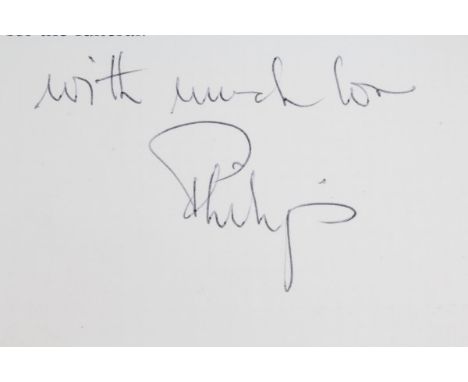 with much love
Philip